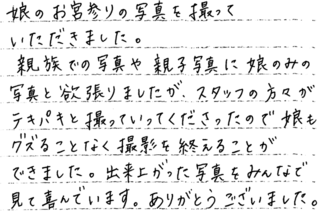 娘のお宮参りの写真を撮って
いただきました。
親族での写真や親子写真に娘のみの
写真と欲張りましたが、スタッフの方々が
テキパキと撮っていってくださったので娘も
グズることなく撮影を終えることが
できました。出来上がった写真をみんなで
見て喜んでいます。ありがとうございました。